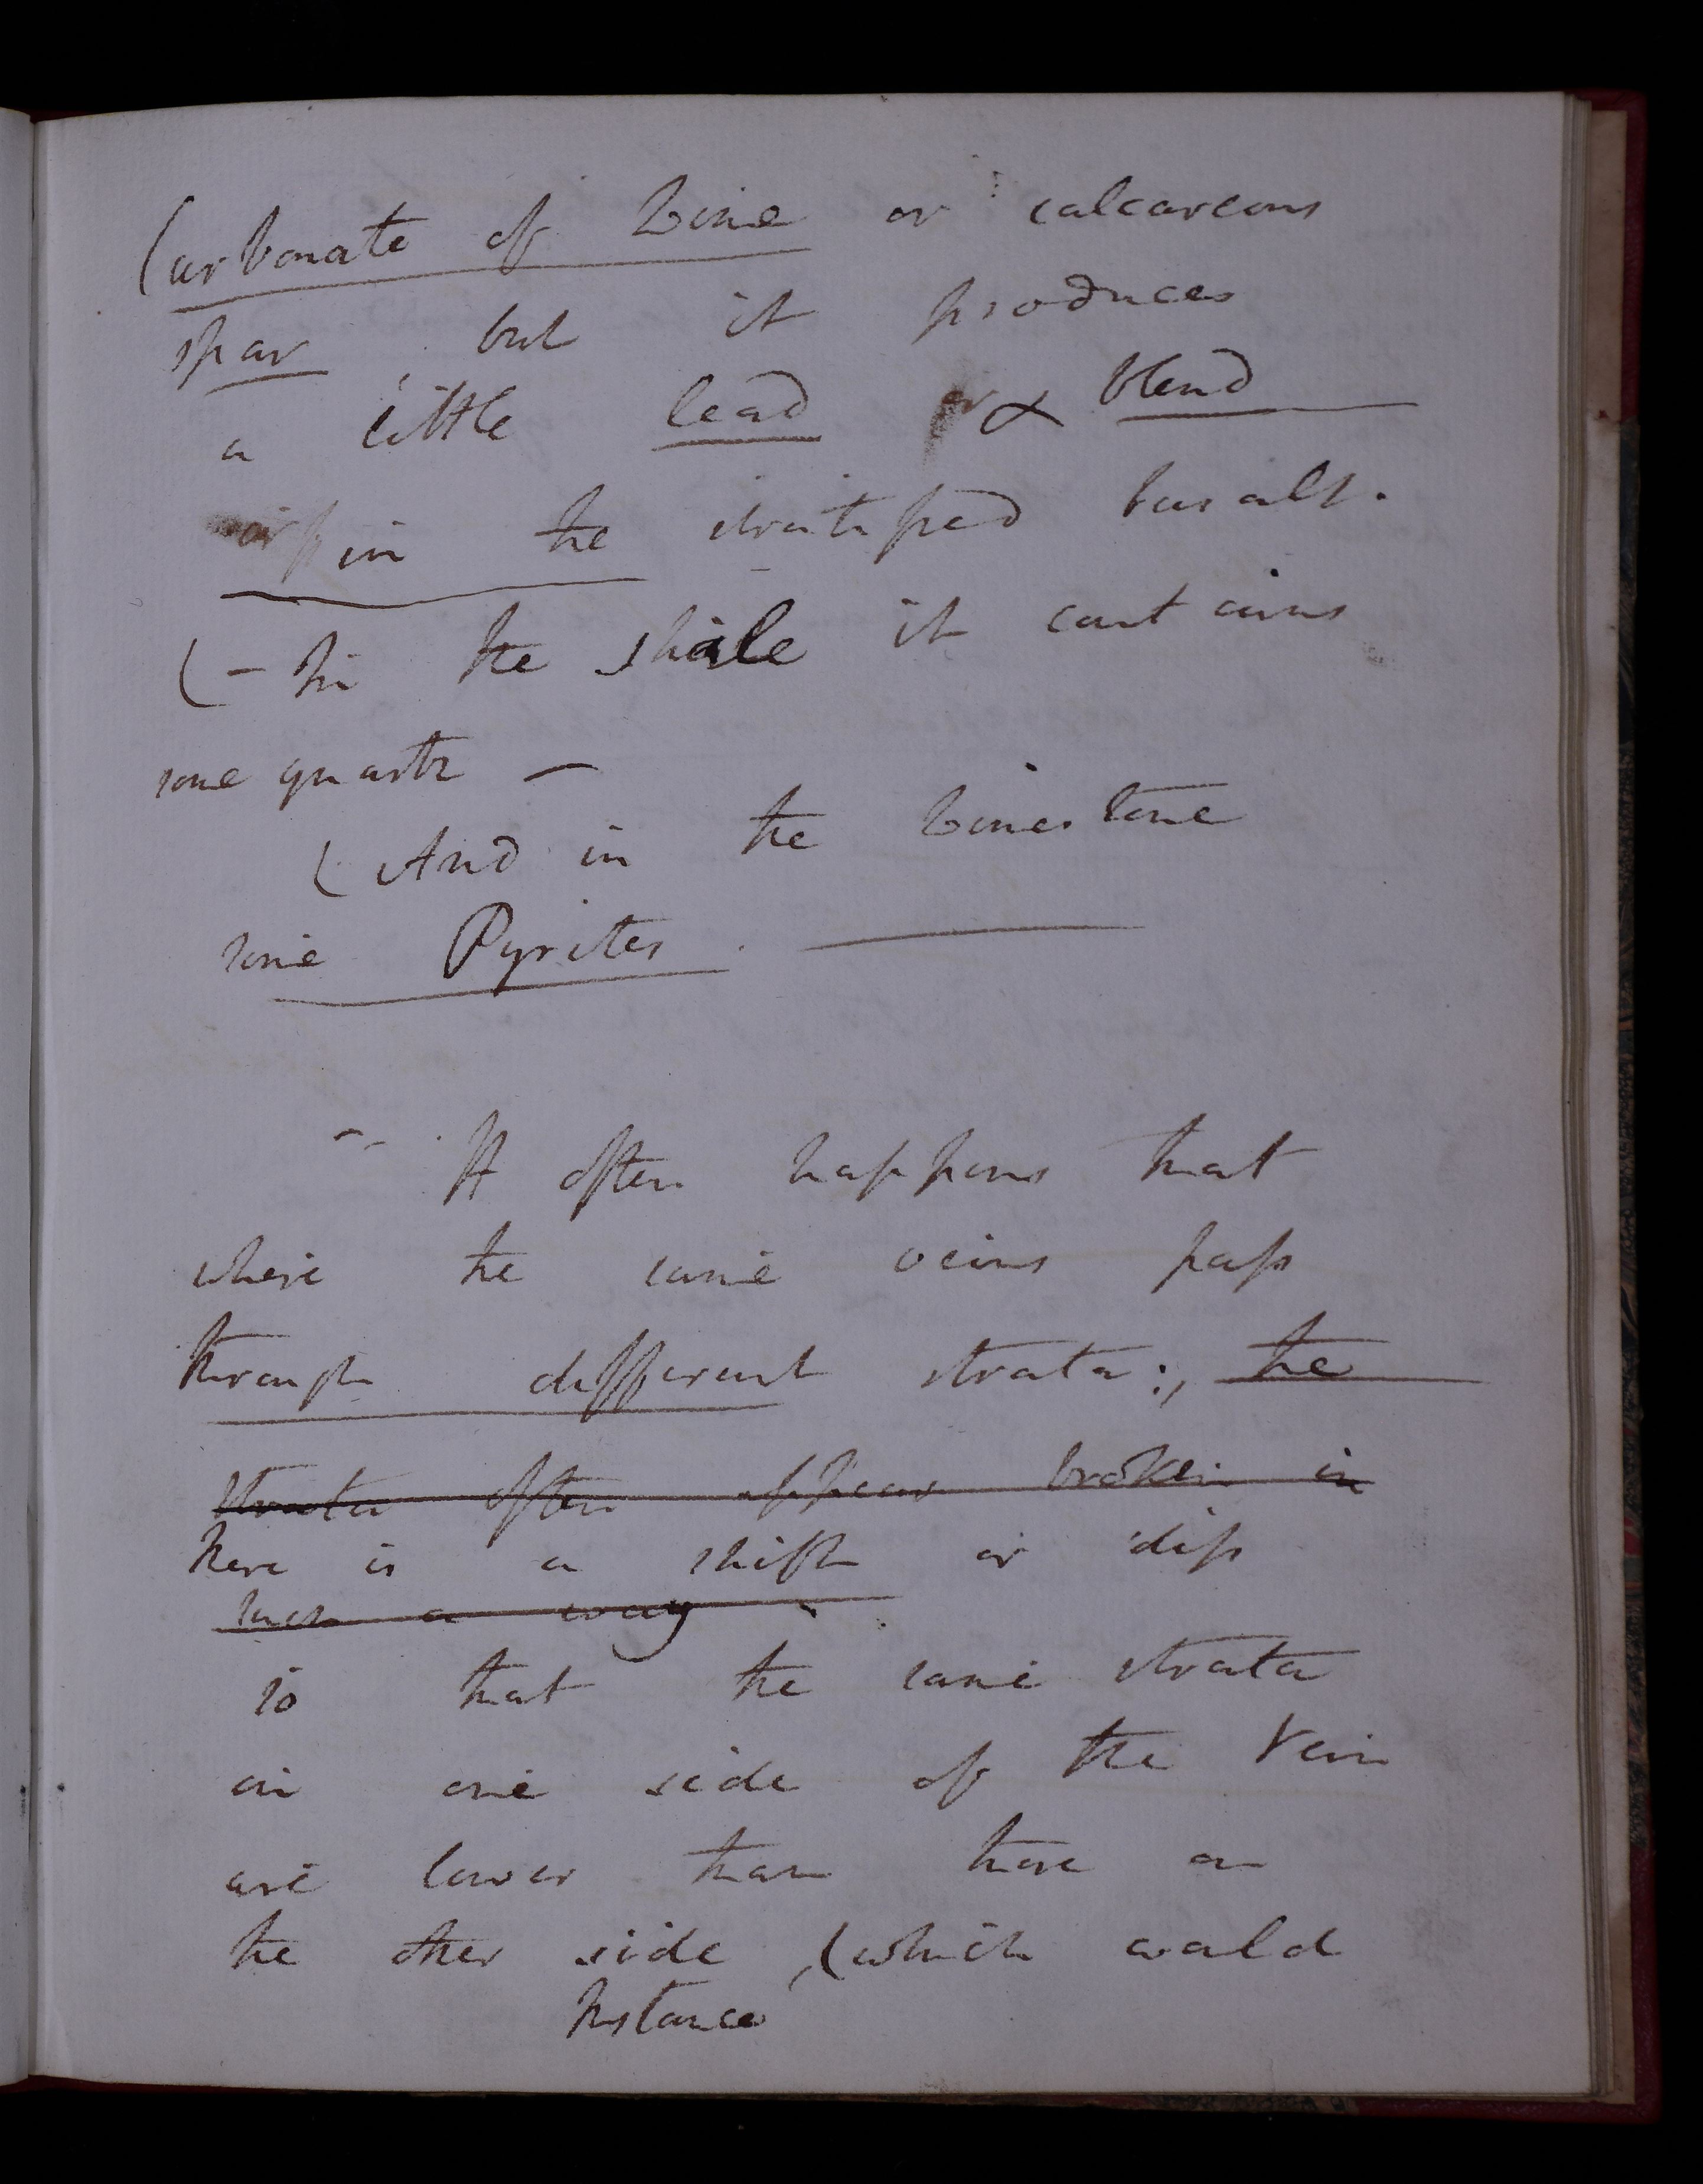 Carbonate of Lime or calcareous
spar but it produces
a little lead & blend
in the stratified basalt.
(- In the shale it contains
some quartz -
(And in the Limestone
some Pyrites.
It often happens that
where the same veins pass
through different strata:, the
strata often appear broken in
there is a shift or dip
such a way
so that the same strata
on one side of the Vein
are lower than those on
the other side, (which would
Instance